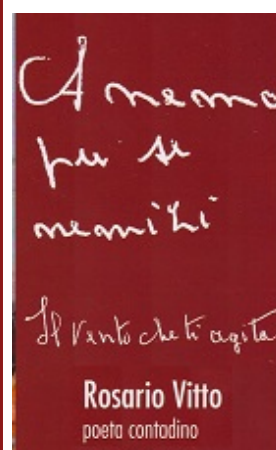 A nemo
pu se
nemiti
Il Vento che ti agita
Rosario Vitto
poeta contadino